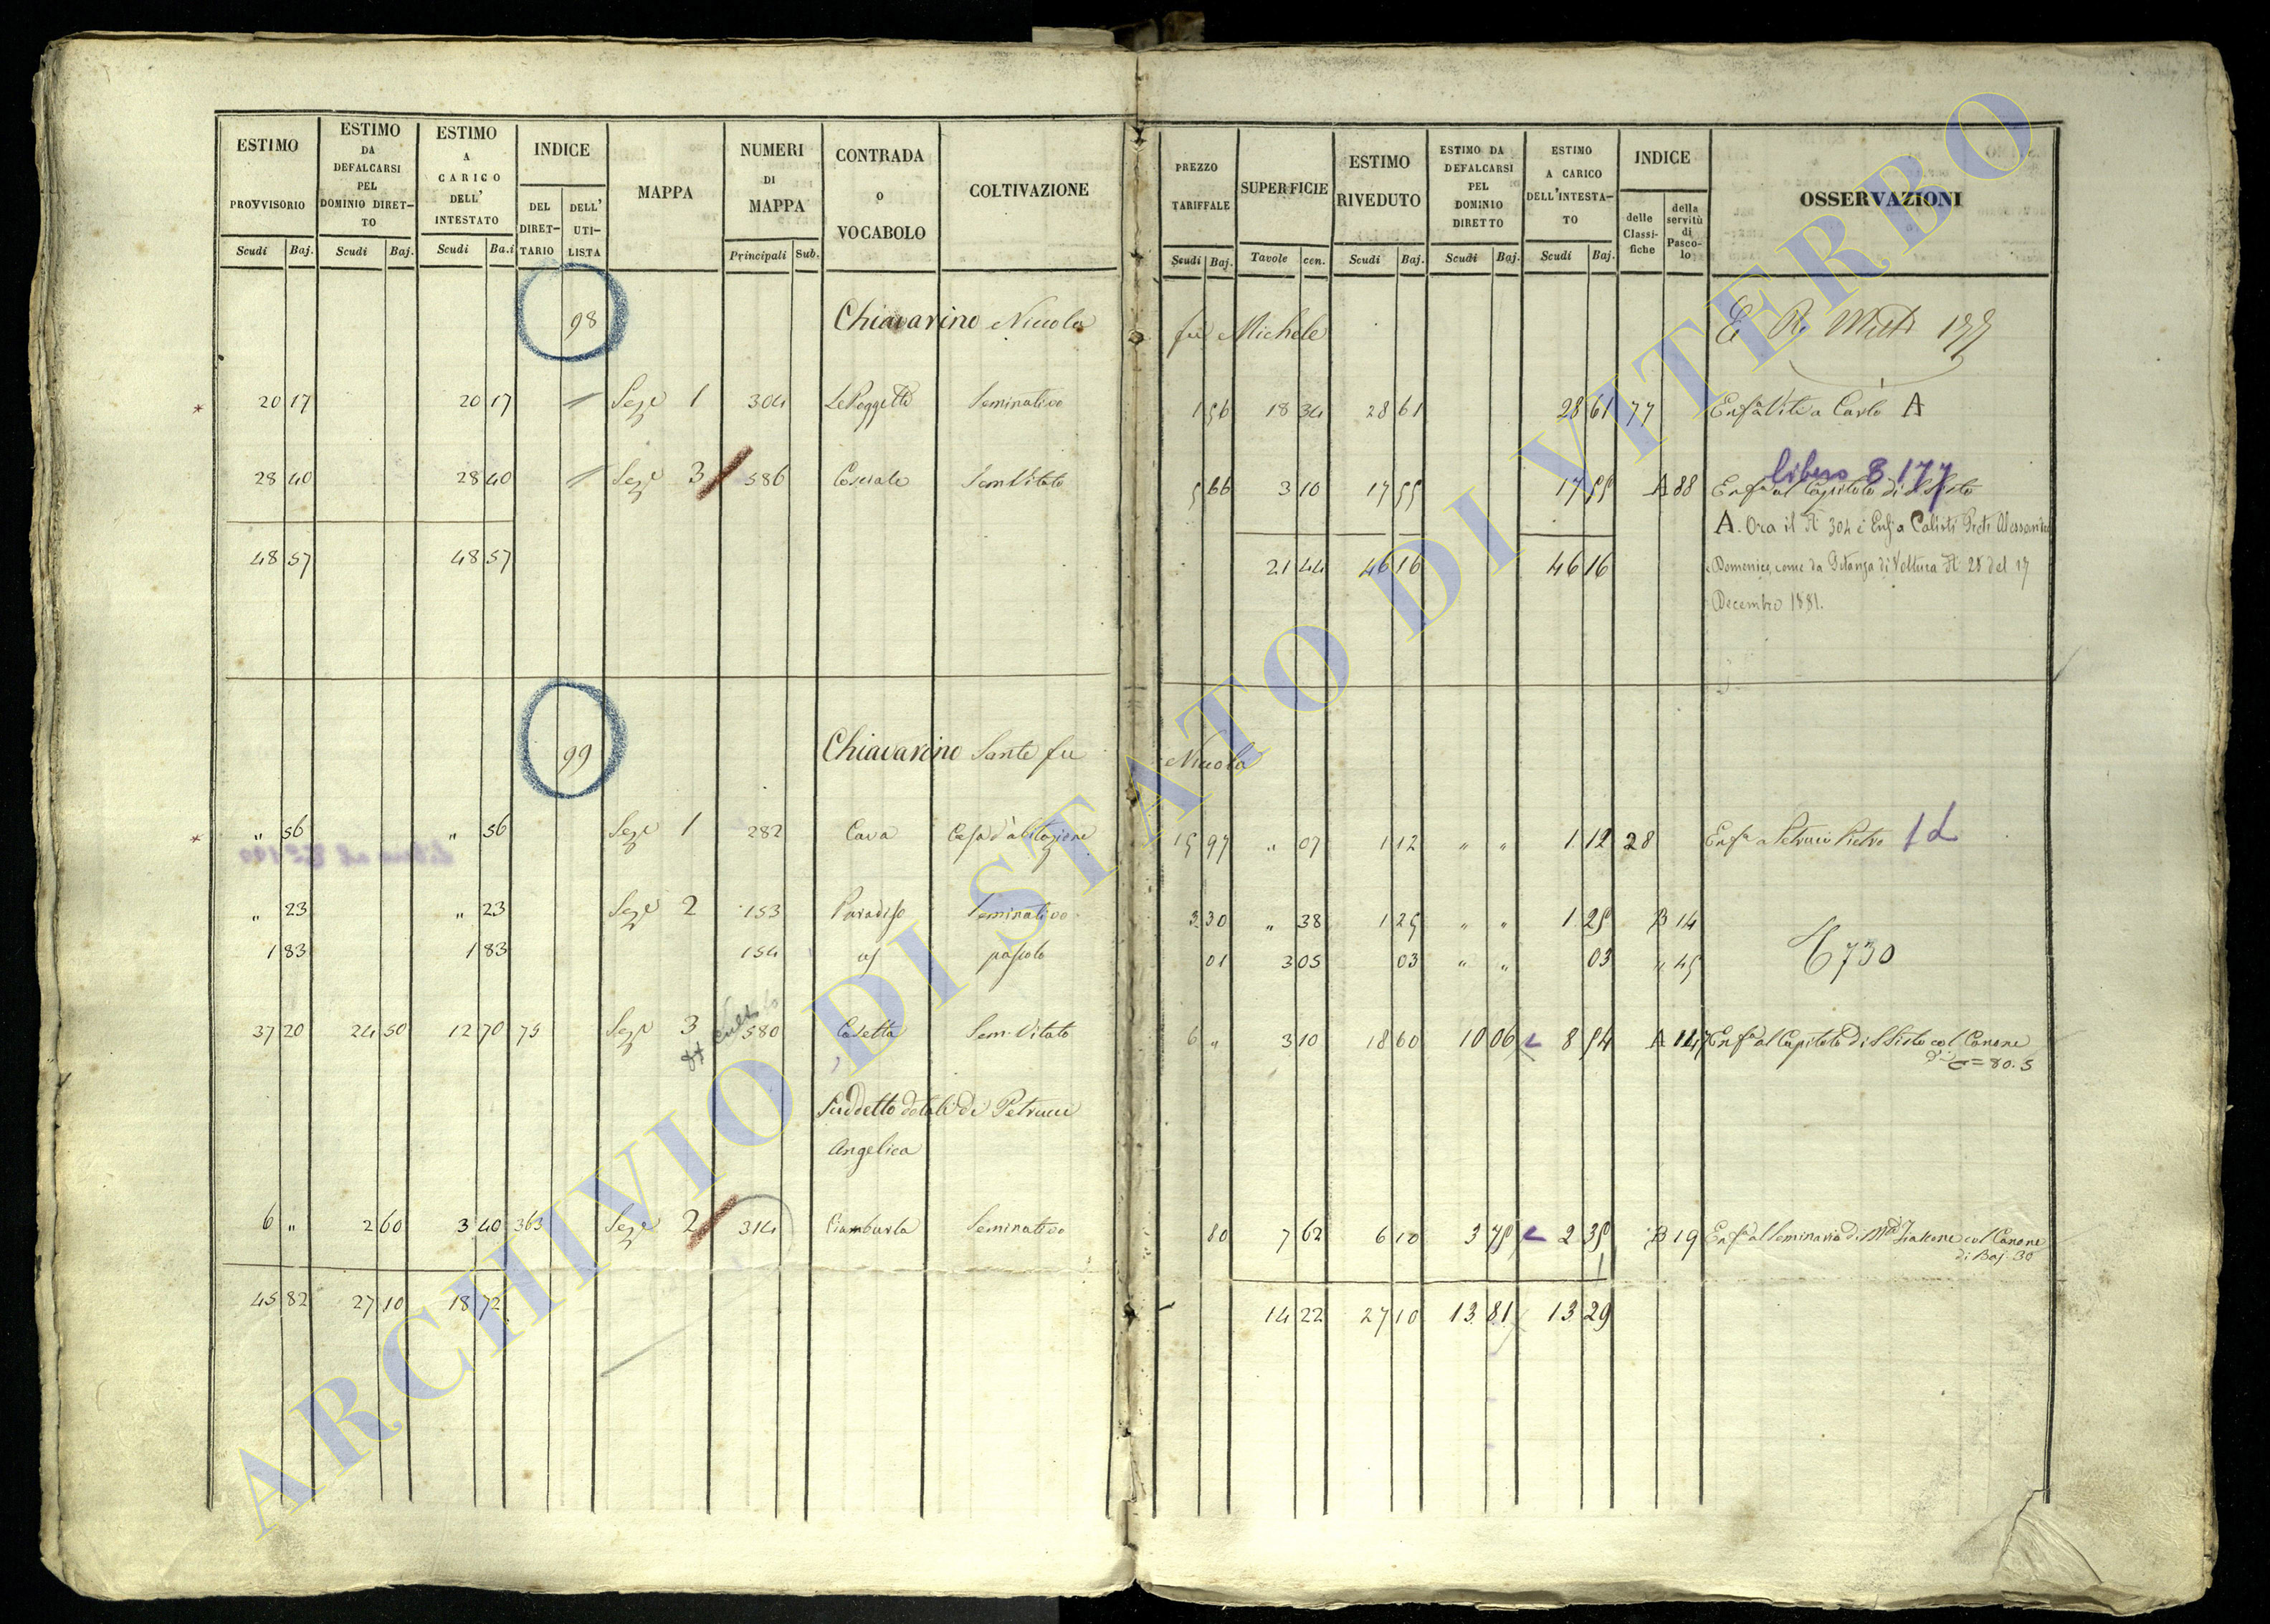 ESTIMO PROVVISORIO Scudi Baj.
ESTIMO DA DEFALCARSI PEL DOMINIO DIRETTO Scudi Baj.
ESTIMO A CARICO DELL' INTESTATO Scudi Ba.i
INDICE DEL DIRETTARIO DELL' UTILISTA
MAPPA
NUMERI DI MAPPA Principali Sub.
CONTRADA o VOCABOLO
COLTIVAZIONE
PREZZO TARIFFALE Scudi Baj.
SUPERFICIE Tavole cen.
ESTIMO RIVEDUTO Scudi Baj.
ESTIMO DA DEFALCARSI PEL DOMINIO DIRETTO Scudi Baj.
ESTIMO A CARICO DELL'INTESTATO Scudi Baj.
INDICE delle Classifiche della servitù di Pascolo
OSSERVAZIONI
98 Chiavarino Niccola fu Michele
20 17 20 17 Seze 1 304 Le Poggette Seminativo 1 56 18 34 28 61 28 61 77 Enfa Vite a Carlo A
libero 8 177
28 40 28 40 Seze 3 586 Cosciale Sem Vitato 5 66 3 10 17 55 17 55 A 88 Enfa al Capitolo di S Sisto
A. Ora il N 304 è Enf a Calisti Preti Alessandro
48 57 48 57 21 44 46 16 46 16 Domenico, come da Istanza di Voltura N 28 del 17
Decembre 1881.
99 Chiavarino Sante fu Niccola
" 56 " 56 Seze 1 282 Cava Casa d'abitazione 15 97 " 07 1 12 " " 1 12 28 Enfa a Petrucci Pietro 1d
" 23 " 23 Seze 2 153 Paradiso Seminativo 3 30 " 38 1 25 " " 1 25 B 14
1 83 1 83 154 pascolo 01 3 05 03 " " 03 " 45 730
37 20 24 50 12 70 75 Seze 3 580 Casetta Sem. Vitato 6 " 3 10 18 60 10 06 8 54 A 147 Enfa al Capitolo di S Sisto col Canone
di = 80.5
Suddetto dotali di Petrucci
Angelica
6 " 2 60 3 40 363 Seze 2 314 Ciamburla Seminativo 80 7 62 6 10 3 75 2 35 B 19 Enfa al Seminario di col Canone
di Baj. 30
45 82 27 10 18 72 14 22 27 10 13 81 13 29
ARCHIVIO DI STATO DI VITERBO